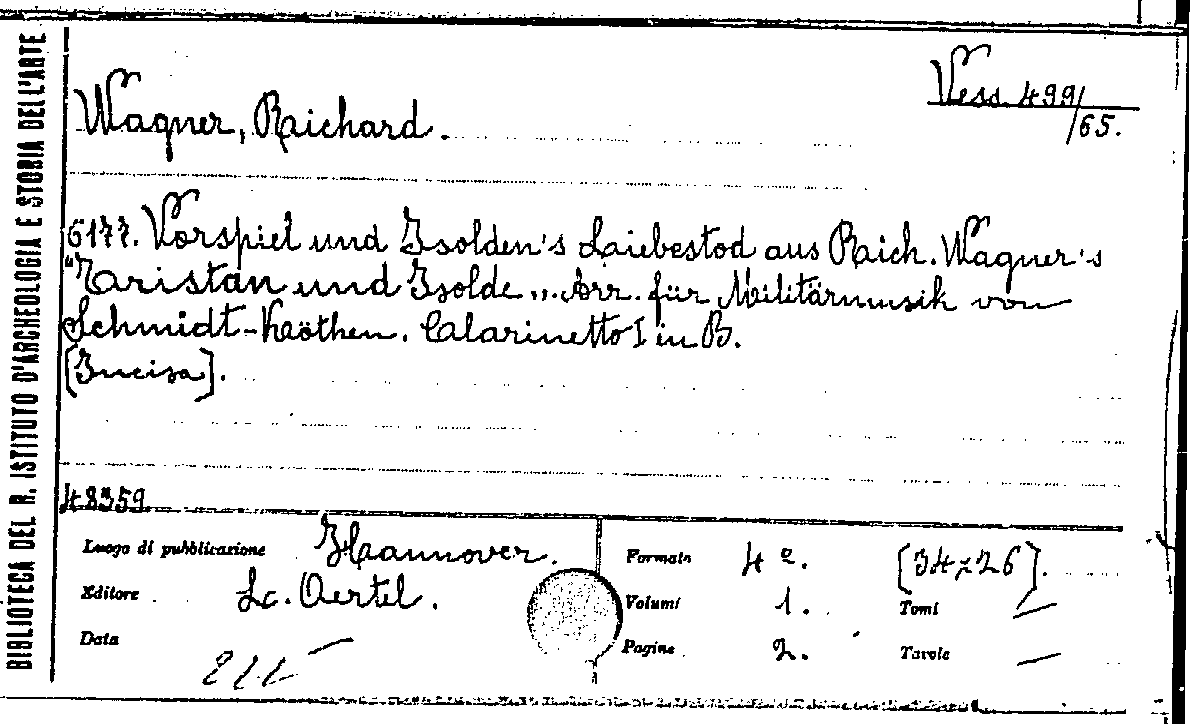 BIBLIOTECA DEL R. ISTITUTO D'ARCHEOLOGIA E STORIA DELL'ARTE
Vess. 499/65.
Wagner, Richard.
6177. Vorspiel und Isolden's Liebestod aus Rich. Wagner's
"Tristan und Isolde„. Arr. für Militärmusik von
Schmidt-Köthen. Clarinetto I in B.
[Incisa].
48359.
Luogo di pubblicazione Hannover.
Editore L. Oertel.
Data
Formato 4º. [34×26].
Volumi 1. Tomi —
Pagine 2. Tavole —